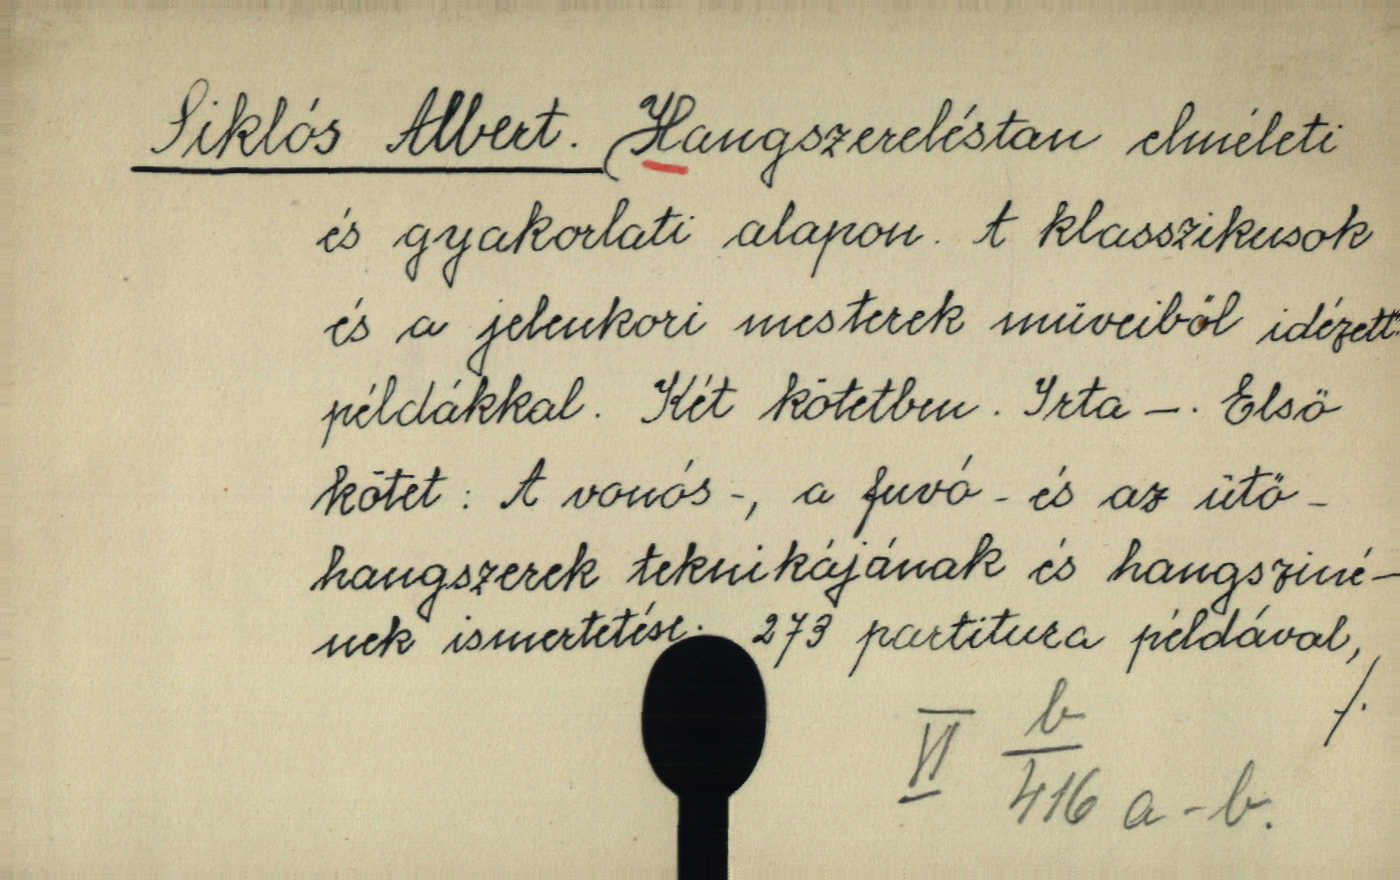 Siklós Albert. (Hangszereléstan elméleti
és gyakorlati alapon. A klasszikusok
és a jelenkori mesterek műveiből idézett
példákkal. Két kötetben. Irta —. Első
kötet: A vonós-, a fuvó- és az ütő-
hangszerek teknikájának és hangsziné-
nek ismertetése. 273 partitura példával,
./.
VI b
416 a-b.